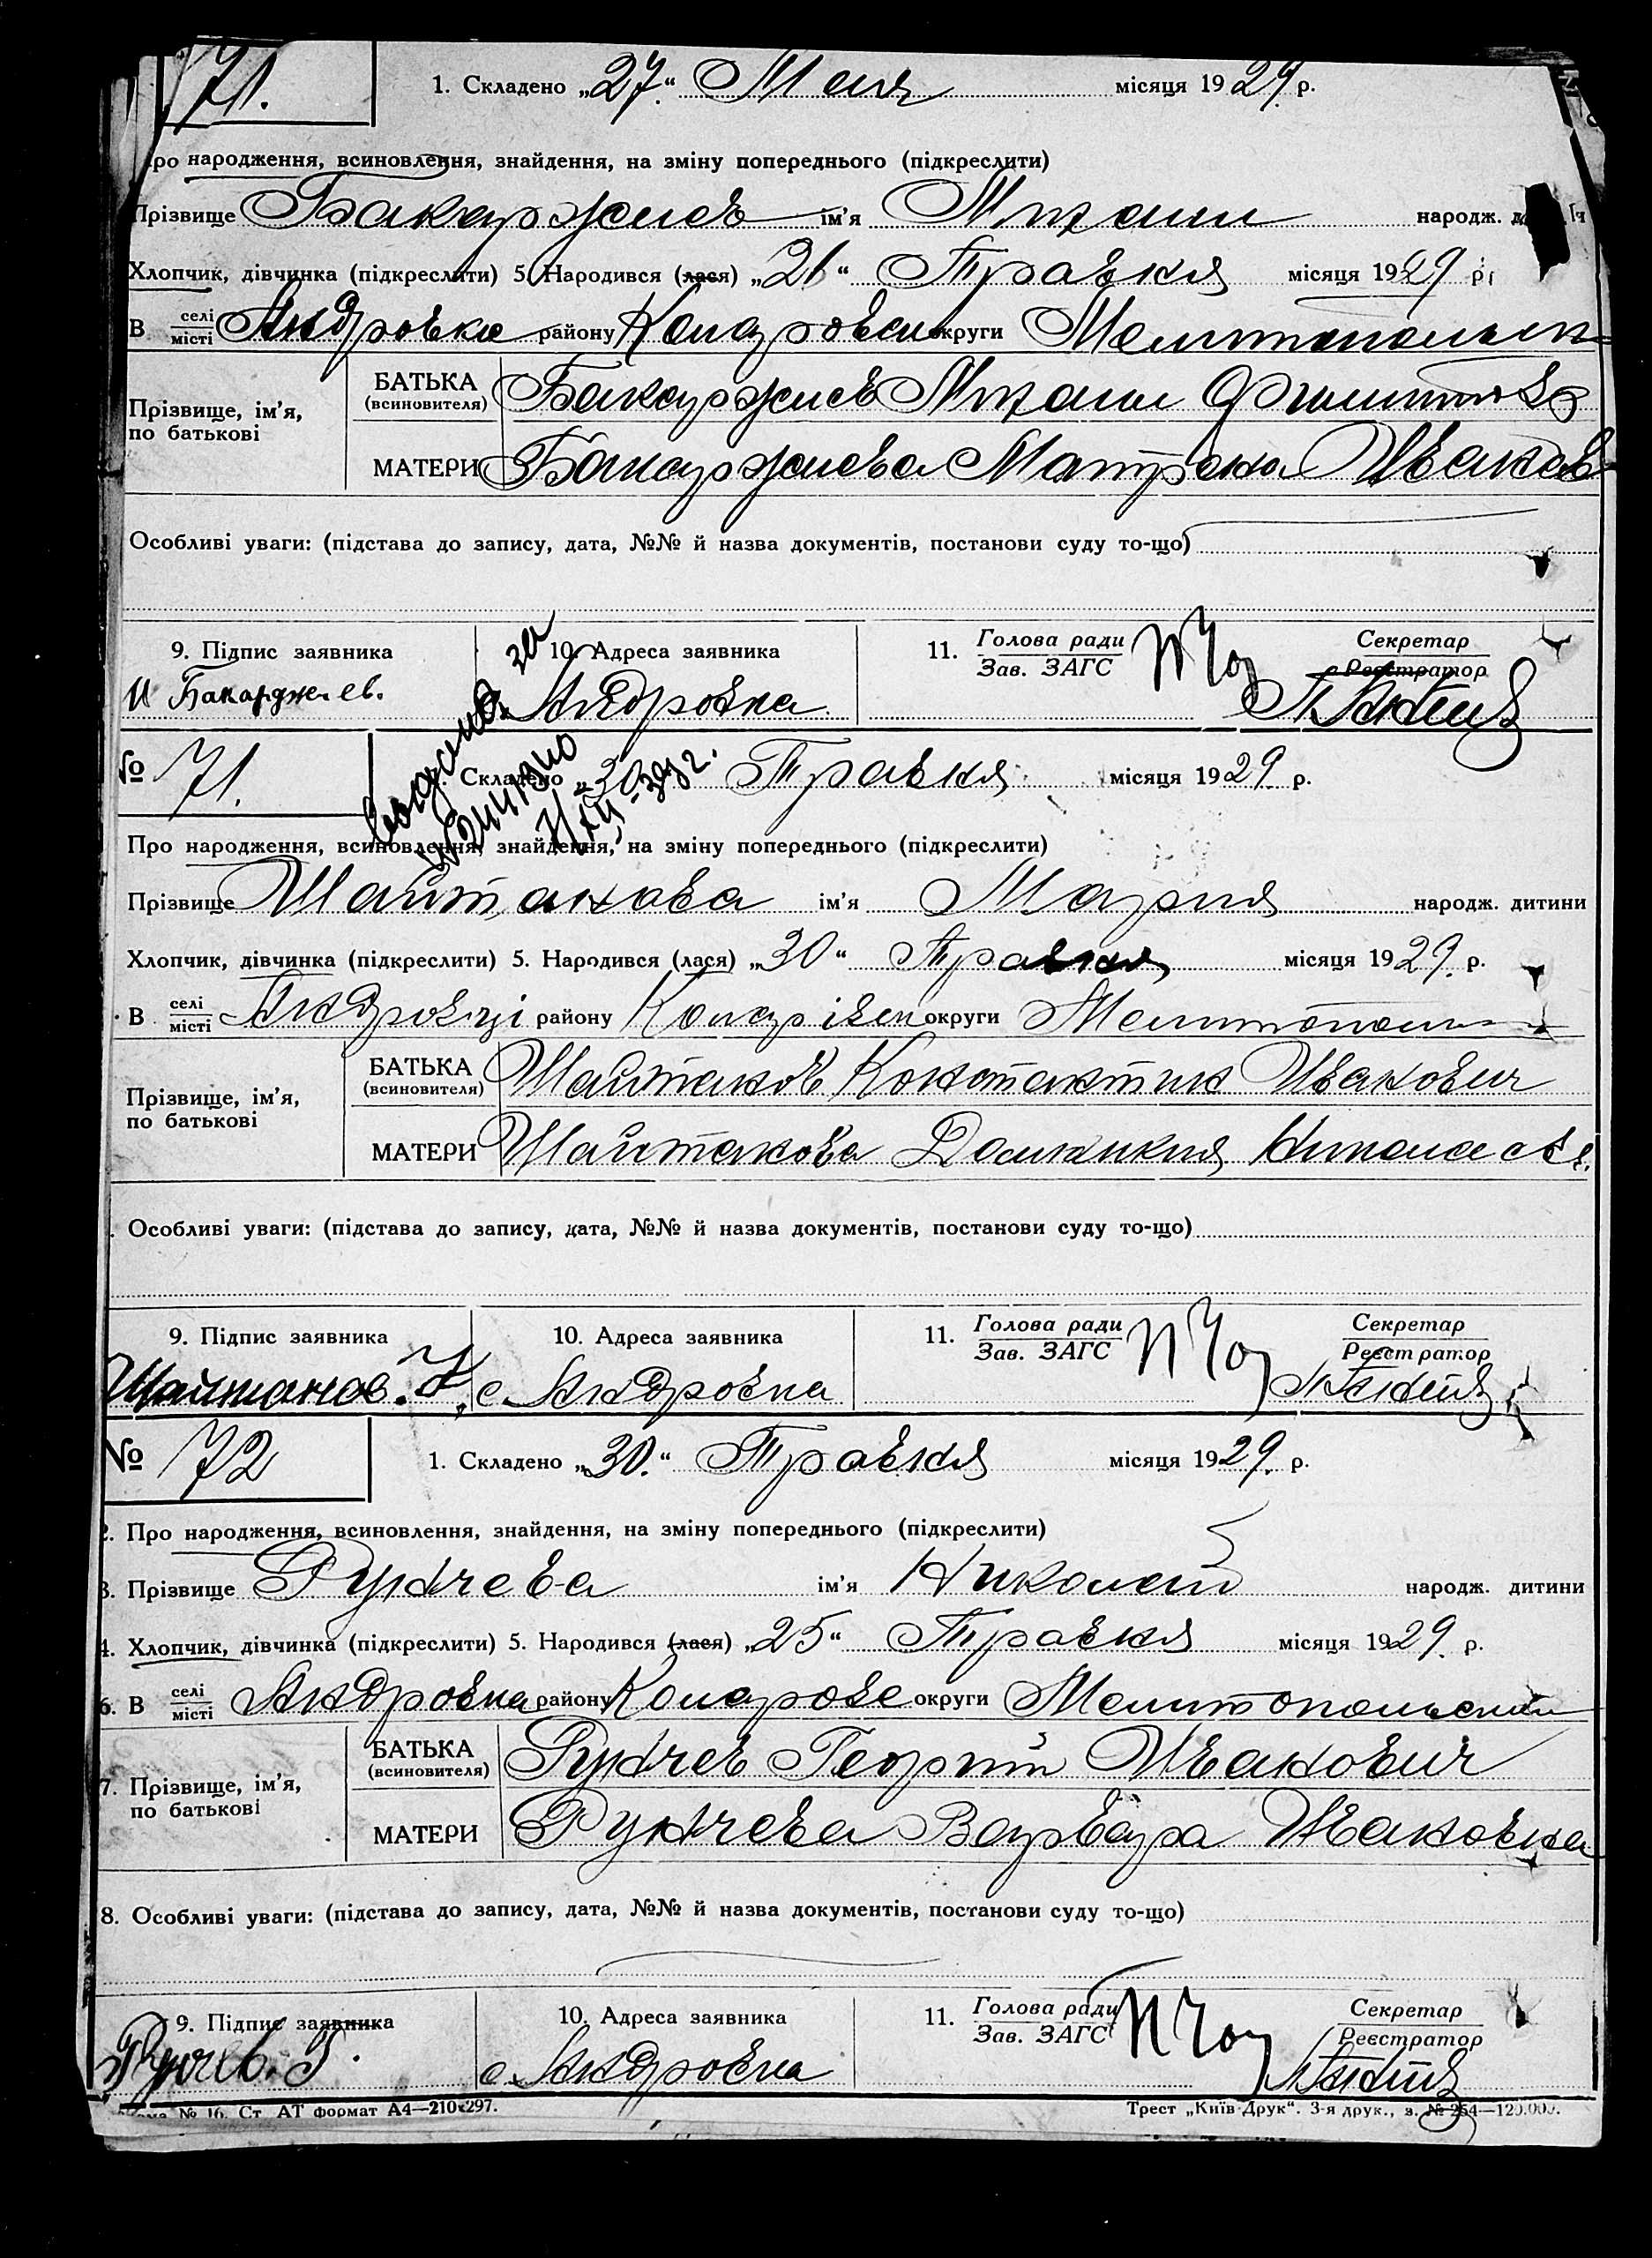 71.
1. Складено „27.“ Мая місяця 1929. р.
про народження, всиновлення, знайдення, на зміну попереднього (підкреслити)
Прізвище Бакарджиев ім’я Михаил народж.
Хлопчик, дівчинка (підкреслити) 5. Народився (лася) „21“ Травня місяця 1929 р.
В селі місті Андровка району округи
Прізвище, ім’я, по батькові
БАТЬКА (всиновителя) Бакарджиев Михаил
МАТЕРИ Бакарджиева Матрена Иванов
Особливі уваги: (підстава до запису, дата, №№ й назва документів, постанови суду то-що)
9. Підпис заявника 10. Адреса заявника 11. Голова ради Зав. ЗАГС Секретар Реєстратор
Бакарджиев. Андровка
№ 71. Складено „30“ Травня місяця 1929. р.
Про народження, всиновлення, знайдення, на зміну попереднього (підкреслити)
Прізвище Шайтанова ім’я Мария народж. дитини
Хлопчик, дівчинка (підкреслити) 5. Народився (лася) „30“ Травня місяця 1929. р.
В селі місті Андровці району округи
Прізвище, ім’я, по батькові
БАТЬКА (всиновителя) Шайтанов Константин Иванович
МАТЕРИ Шайтанова
Особливі уваги: (підстава до запису, дата, №№ й назва документів, постанови суду то-що)
9. Підпис заявника 10. Адреса заявника 11. Голова ради Зав. ЗАГС Секретар Реєстратор
Шайтанов. К с. Андровка
№ 72 1. Складено „30.“ Травня місяця 1929. р.
2. Про народження, всиновлення, знайдення, на зміну попереднього (підкреслити)
3. Прізвище Рунчева ім’я Николай народж. дитини
4. Хлопчик, дівчинка (підкреслити) 5. Народився (лася) „25“ Травня місяця 1929. р.
6. В селі місті Андровка району округи Мелитопольский
7. Прізвище, ім’я, по батькові
БАТЬКА (всиновителя) Рунчев Георгий Иванович
МАТЕРИ Рунчева Варвара Ивановна
8. Особливі уваги: (підстава до запису, дата, №№ й назва документів, постанови суду то-що)
9. Підпис заявника 10. Адреса заявника 11. Голова ради Зав. ЗАГС Секретар Реєстратор
с. Андровка
№ 16. Ст. АТ формат А4—210х297. Трест „Київ-Друк“. 3-я друк., з. № 254—120.000.